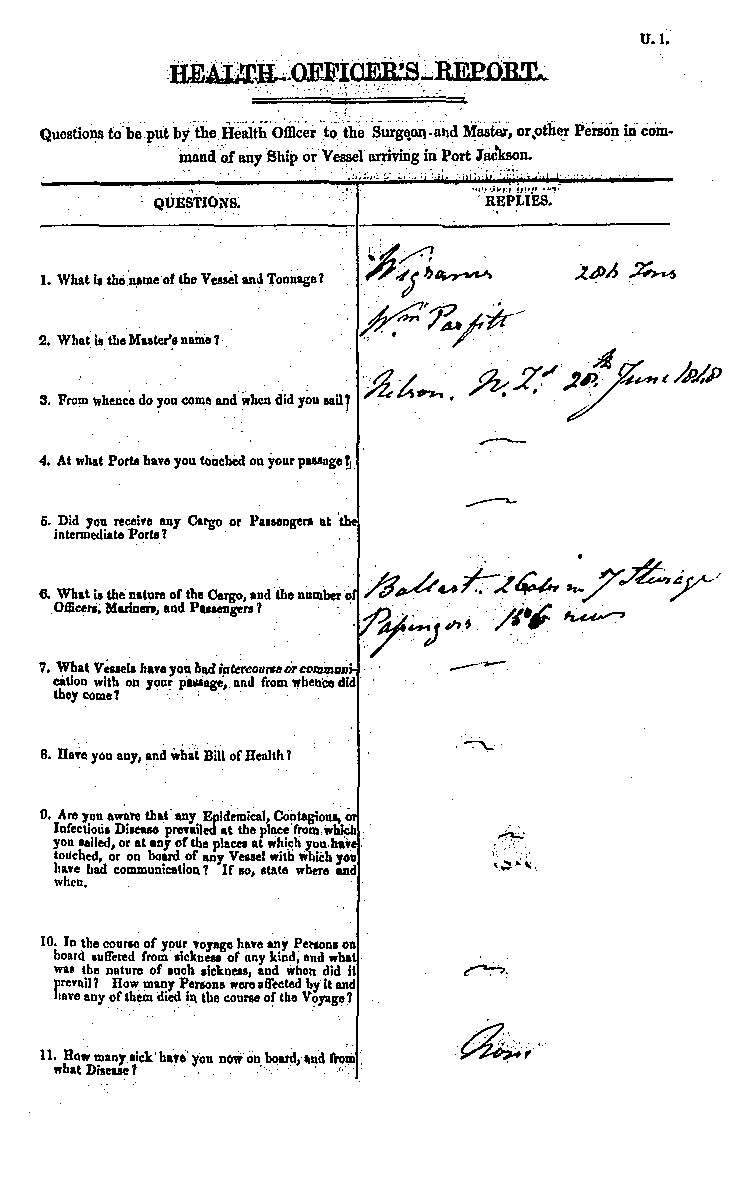 U. 1.
HEALTH OFFICER'S REPORT.
Questions to be put by the Health Officer to the Surgeon and Master, or other Person in com-
mand of any Ship or Vessel arriving in Port Jackson.
QUESTIONS.
REPLIES.
1. What is the name of the Vessel and Tonnage?
Tons
2. What is the Master's name?
Wm Parfitt
3. From whence do you come and when did you sail?
Nelson. N. Zd 28th June 1848
4. At what Ports have you touched on your passage?
—
5. Did you receive any Cargo or Passengers at the
intermediate Ports?
—
6. What is the nature of the Cargo, and the number of
Officers, Mariners, and Passengers?
Ballast. 2 Cabin 7 Steerage
Passengers
7. What Vessels have you had intercourse or communi-
cation with on your passage, and from whence did
they come?
—
8. Have you any, and what Bill of Health?
—
9. Are you aware that any Epidemical, Contagious, or
Infectious Disease prevailed at the place from which
you sailed, or at any of the places at which you have
touched, or on board of any Vessel with which you
have had communication? If so, state where and
when.
—
10. In the course of your voyage have any Persons on
board suffered from sickness of any kind, and what
was the nature of such sickness, and when did it
prevail? How many Persons were affected by it and
have any of them died in the course of the Voyage?
—
11. How many sick have you now on board, and from
what Disease?
None